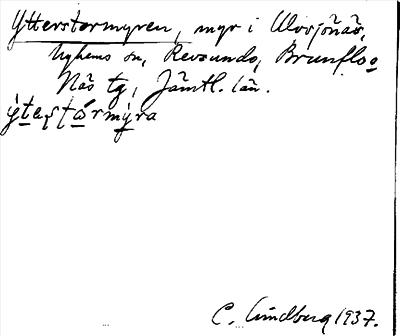 Ytterstormyren, myr i Ulvsjönäs,
Nyhems sn, Revsunds, Brunflo o
Näs tg, Jämtl. län.
ỳtaʂʈórmy̆ra
C. Lindberg 1937.